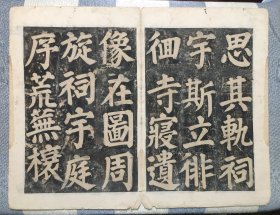 思其軌祠
宇斯立徘
徊寺寢遺
像在圖周
旋祠宇庭
序荒蕪榱